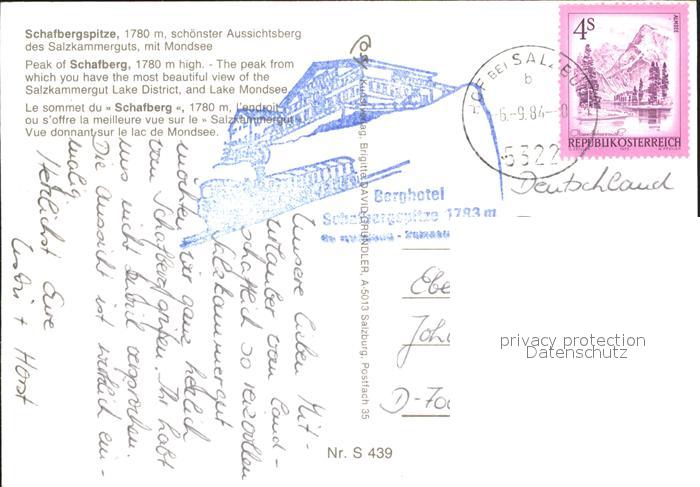 Schafbergspitze, 1780 m, schönster Aussichtsberg
des Salzkammerguts, mit Mondsee
Peak of Schafberg, 1780 m high. - The peak from
which you have the most beautiful view of the
Salzkammergut Lake District, and Lake Mondsee.
Le sommet du » Schafberg «, 1780 m, l'endroit
ou s'offre la meilleure vue sur le » Salzkammergut «.
Vue donnant sur le lac de Mondsee.
Unsere lieben Mit-
urlauber vom Land-
schaftlich so reizvollen
Salzkammergut
möchten wir ganz herzlich
vom Schafberg grüßen. Ihr habt
uns nicht zuviel versprochen.
Die Aussicht ist wirklich ein-
malig.
Herzlichst Eure
+ Horst
Brigitte DAVID-GRÜNDLER, A-5013 Salzburg, Postfach 35
Nr. S 439
Berghotel
Schafbergspitze 1783 m
HOF BEI SALZBURG
b
-6.-9.84-
5322
4S
ALMSEE
Oberösterreich
REPUBLIK ÖSTERREICH
Deutschland
Ebe
Joh
D-70
privacy protection
Datenschutz